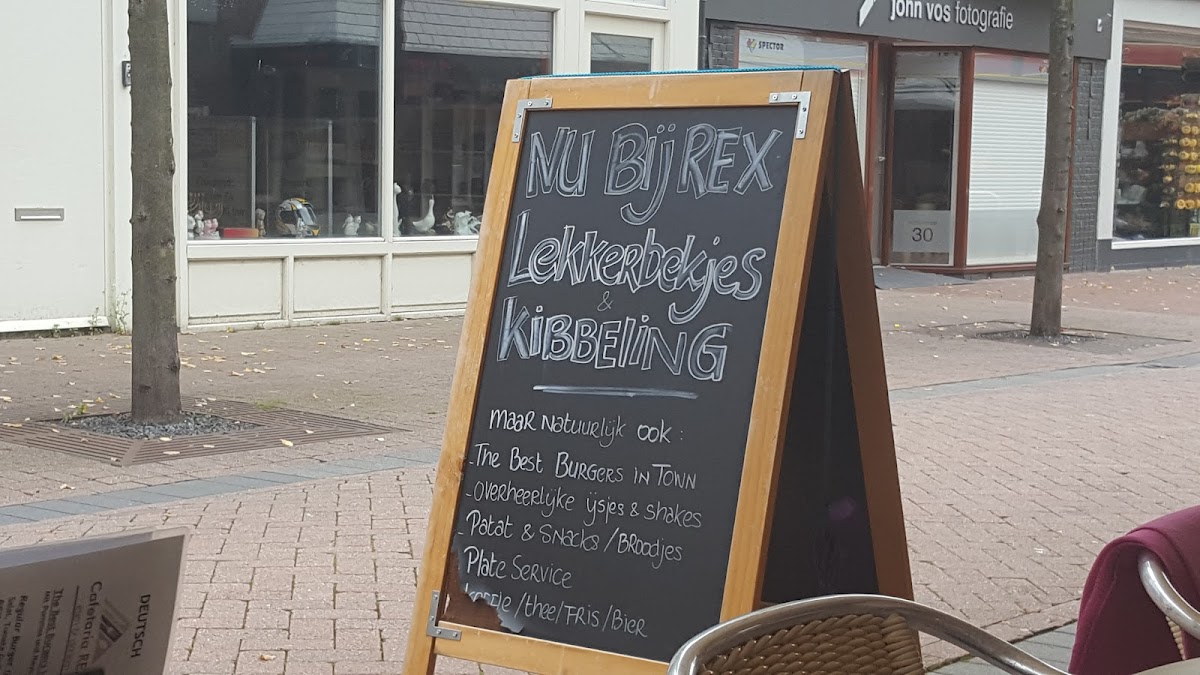 john vos fotografie
SPECTOR
30
NU Bij REX
Lekkerbekjes
&
KiBBEliNG
maar natuurlijk ook :
- The Best Burgers in Town
- overheerlijke ijsjes & shakes
- Patat & Snacks / Broodjes
Plate Service
koffie / thee / Fris / Bier
DEUTSCH
Cafetaria
The Best
Regular Burger